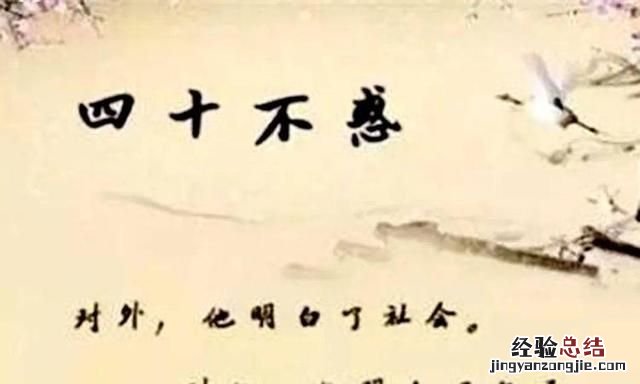 四十不惑
对外，他明白了社会。
经验总结
jingyanzongjie.com